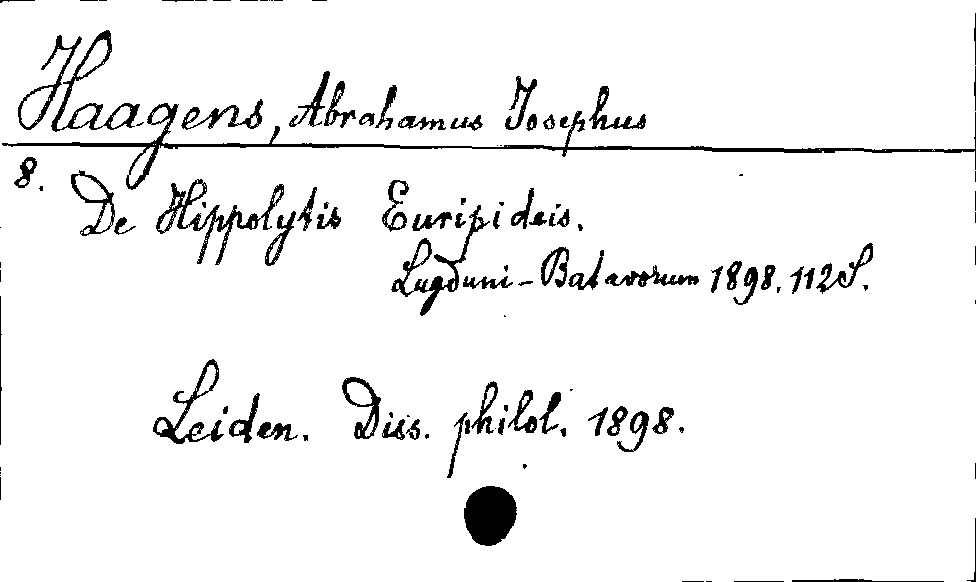 Haagens, Abrahamus Josephus
8. De Hippolytis Euripideis.
Lugduni-Batavorum 1898. 112 S.
Leiden. Diss. philol. 1898.